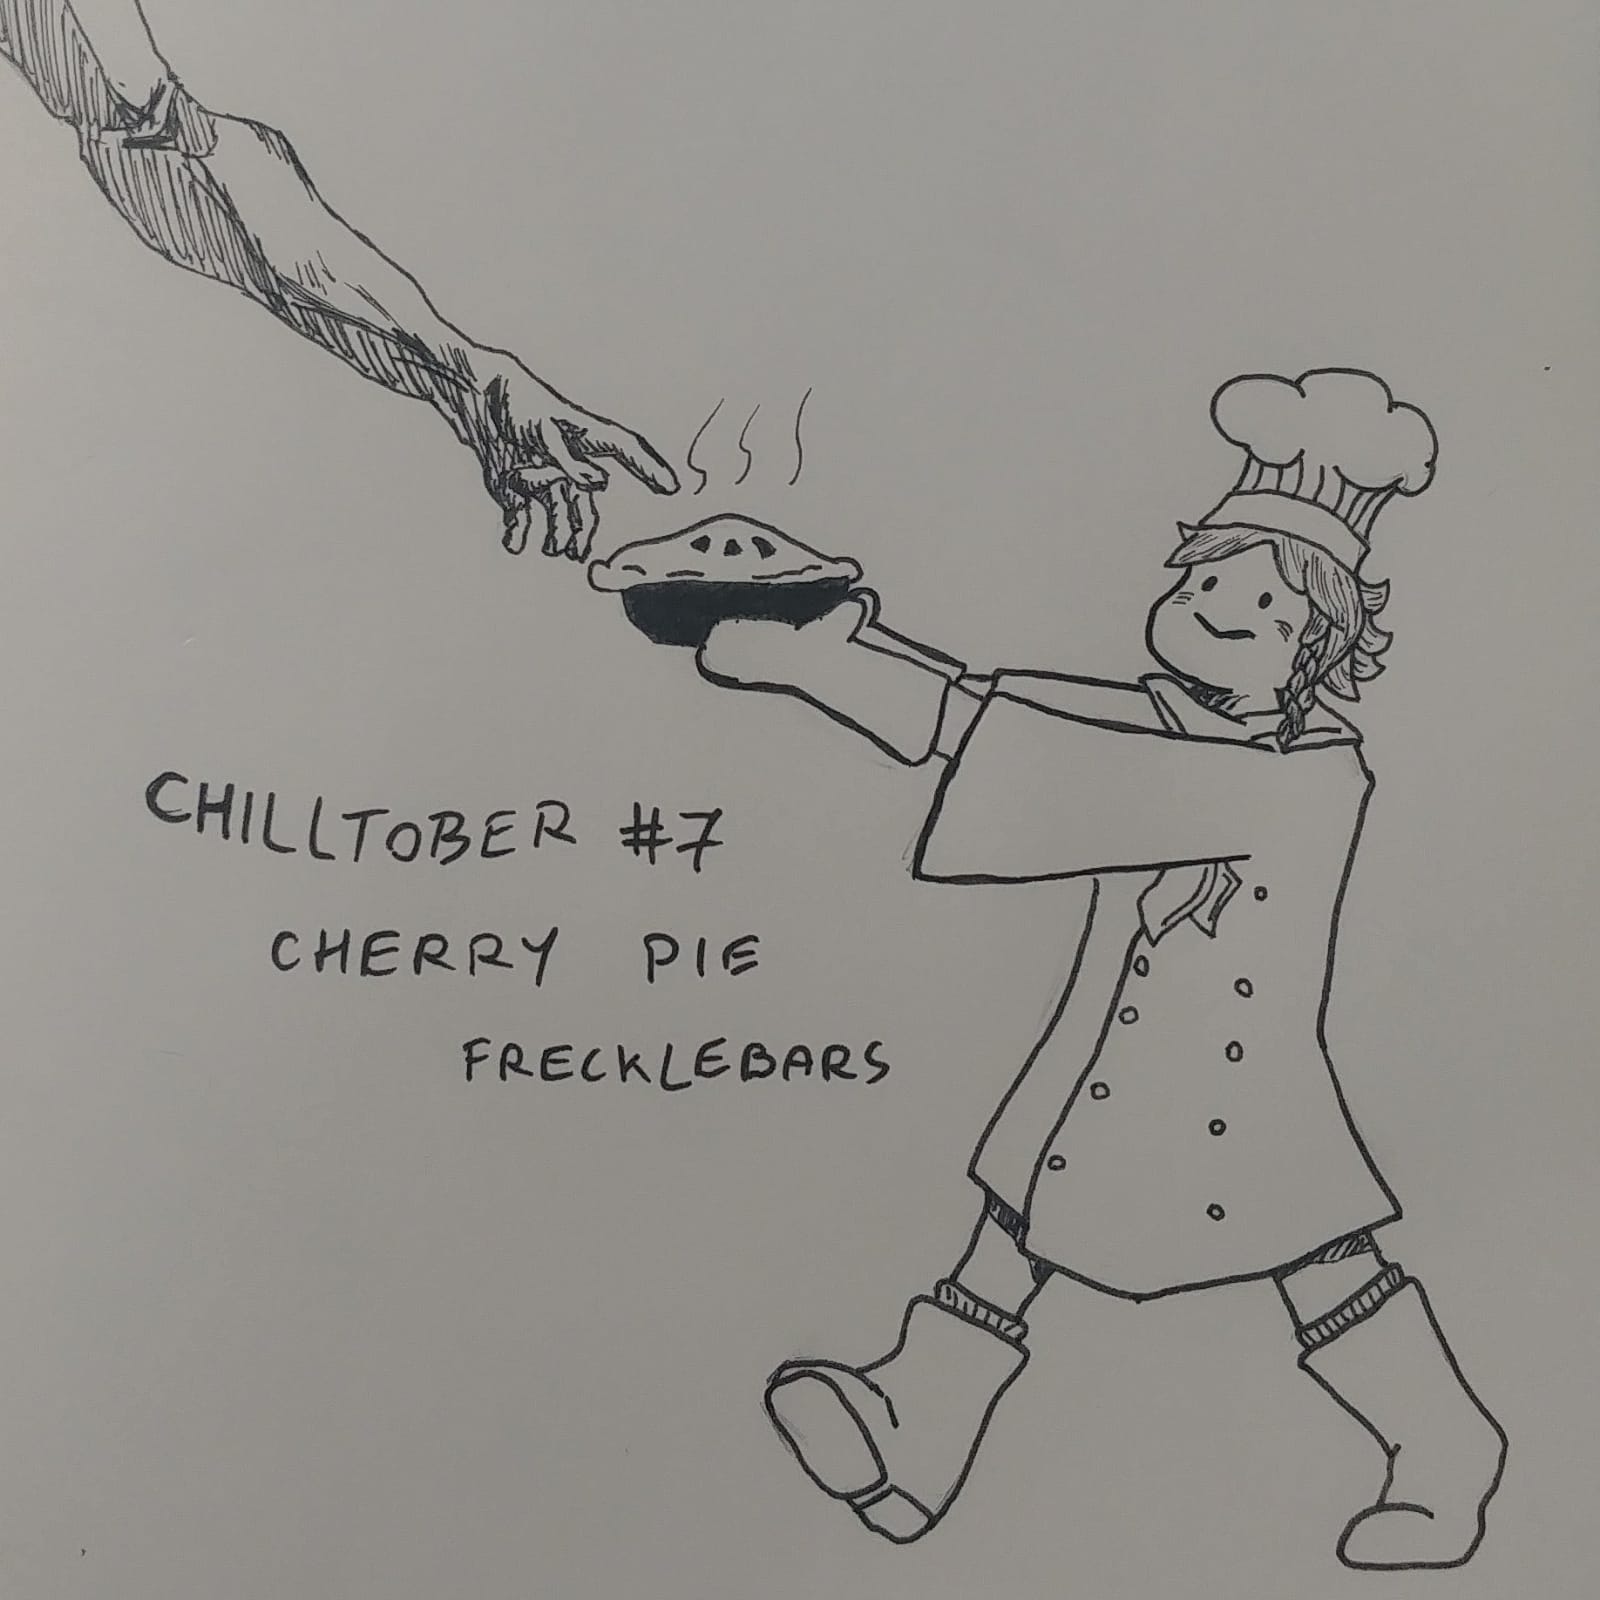 CHILLTOBER #7
CHERRY PIE
FRECKLEBARS